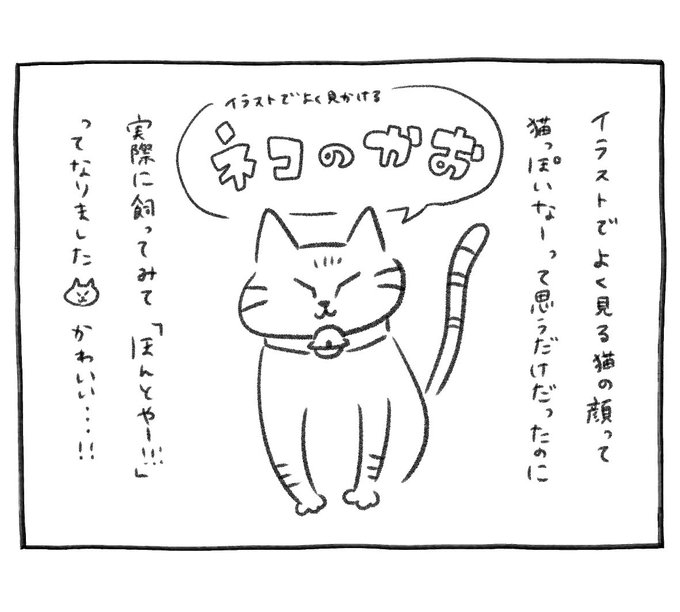 イラストでよく見かける
ネコのかお
イラストでよく見る猫の顔って
猫っぽいなーって思うだけだったのに
実際に飼ってみて「ほんとやー!!!」
ってなりました かわいい...!!